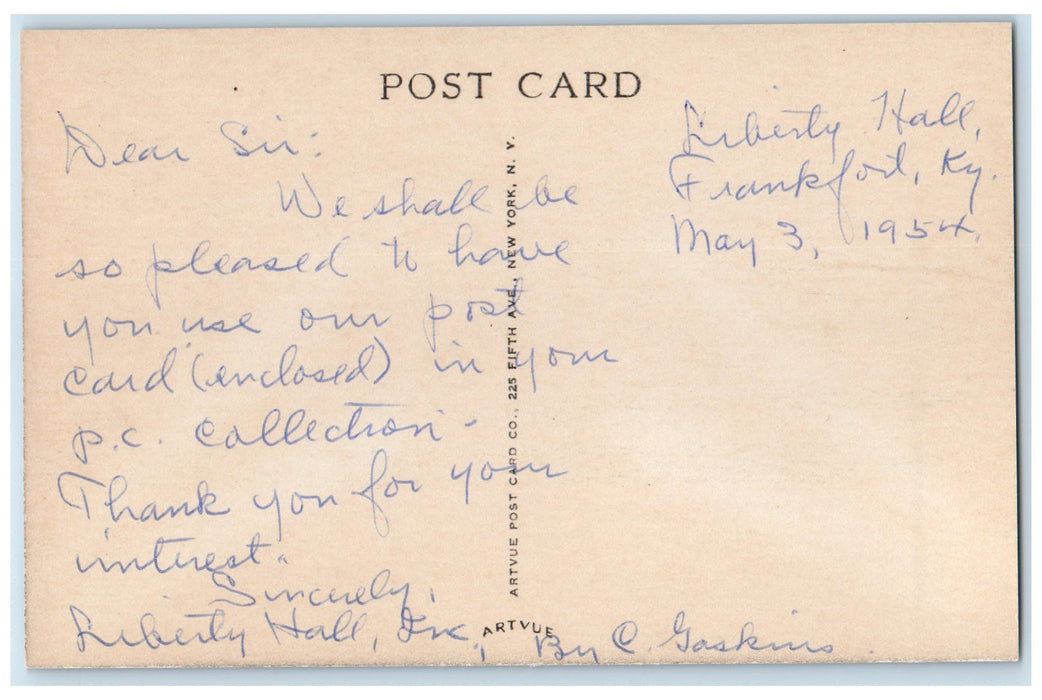 POST CARD
Liberty Hall,
Frankfort, Ky.
May 3, 1954.
Dear Sir:
We shall be
so pleased to have
you use our post
card (enclosed) in your
p.c. collection.
Thank you for your
interest.
Sincerely,
Liberty Hall, Inc.,
By C. Gaskins.
ARTVUE POST CARD CO., 225 FIFTH AVE., NEW YORK, N. Y.
ARTVUE